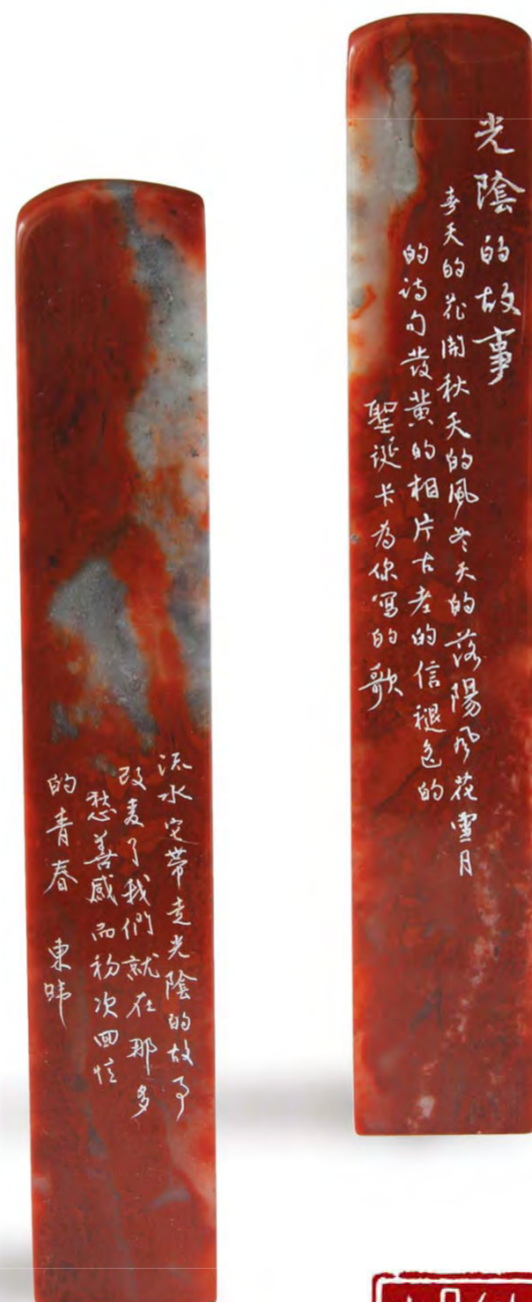 光陰的故事
春天的花開秋天的風冬天的落陽风花雪月
的诗句發黃的相片古老的信褪色的
聖诞卡为你寫的歌
流水它帶走光陰的故事
改变了我們就在那多
愁善感而初次回忆
的青春 東